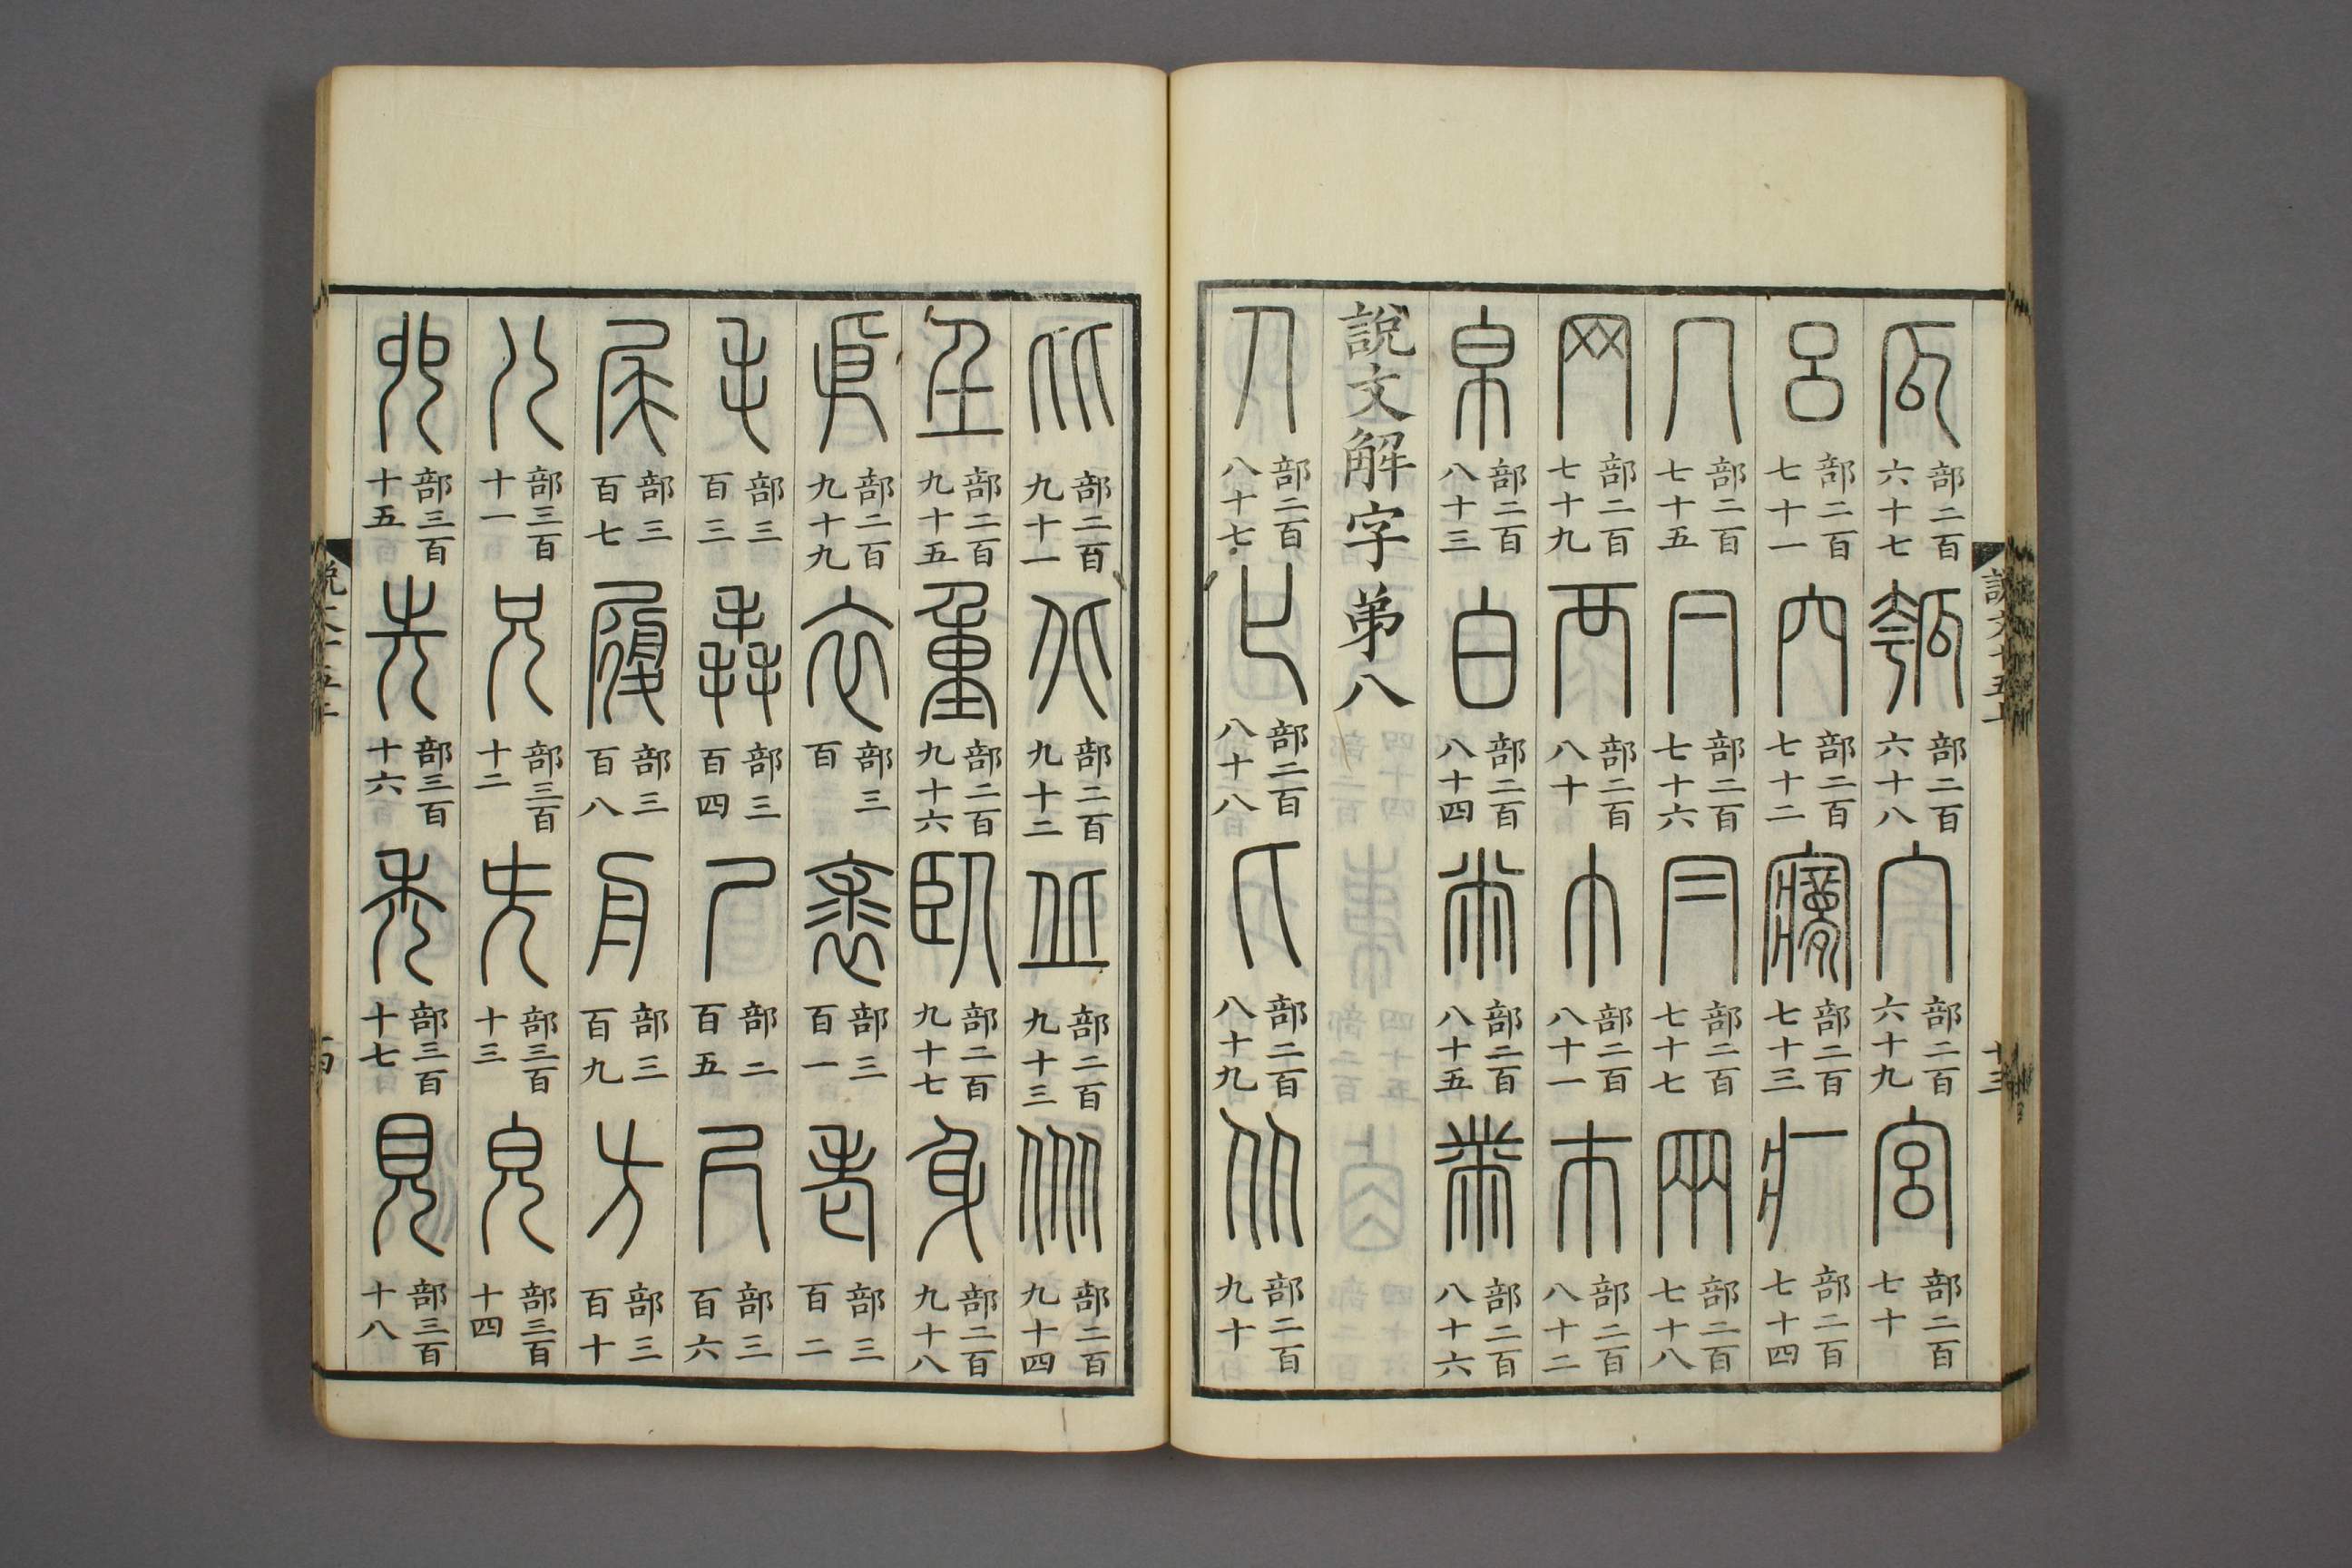 說文十五上 十三
瓜 部二百六十七 瓠 部二百六十八 宀 部二百六十九 宮 部二百七十
呂 部二百七十一 穴 部二百七十二 㝱 部二百七十三 疒 部二百七十四
冖 部二百七十五 𠔼 部二百七十六 冃 部二百七十七 㒳 部二百七十八
网 部二百七十九 襾 部二百八十 巾 部二百八十一 巿 部二百八十二
帛 部二百八十三 白 部二百八十四 㡀 部二百八十五 黹 部二百八十六
說文解字弟八
人 部二百八十七 𠤎 部二百八十八 匕 部二百八十九 从 部二百九十
比 部二百九十一 北 部二百九十二 丘 部二百九十三 㐺 部二百九十四
𡈼 部二百九十五 重 部二百九十六 臥 部二百九十七 身 部二百九十八
㐆 部二百九十九 衣 部三百 裘 部三百一 老 部三百二
毛 部三百三 毳 部三百四 尸 部二百五 尺 部三百六
尾 部三百七 履 部三百八 舟 部三百九 方 部三百十
儿 部三百十一 兄 部三百十二 兂 部三百十三 皃 部三百十四
𠑹 部三百十五 先 部三百十六 禿 部三百十七 見 部三百十八